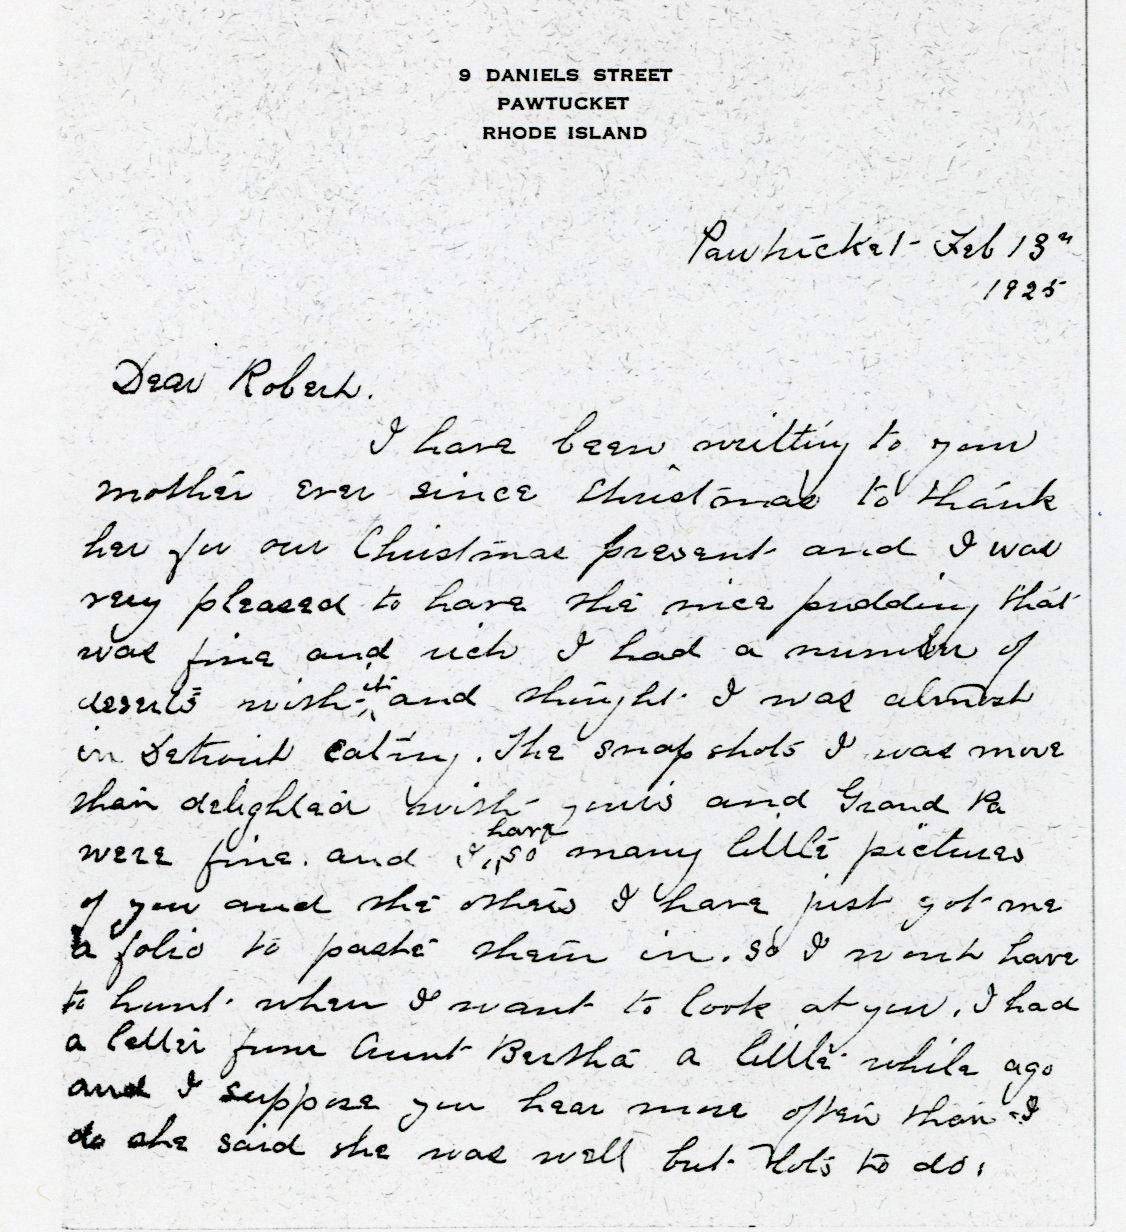 9 DANIELS STREET
PAWTUCKET
RHODE ISLAND
Pawtucket Feb 13th
1925
Dear Robert.
I have been writting to your
mother ever since Christmas to thank
her for our Christmas present and I was
very pleased to have the nice pudding that
was fine and rich I had a number of
deserts with it and thought I was almost
in Detroit eating. The snap shots I was more
than delighted with yours and Grand Pa
were fine. and I have so many little pictures
of you and the others I have just got me
a folio to paste them in. So I wont have
to hunt when I want to look at you. I had
a letter from Aunt Bertha a little while ago
and I suppose you hear more often than I
do she said she was well but lots to do.